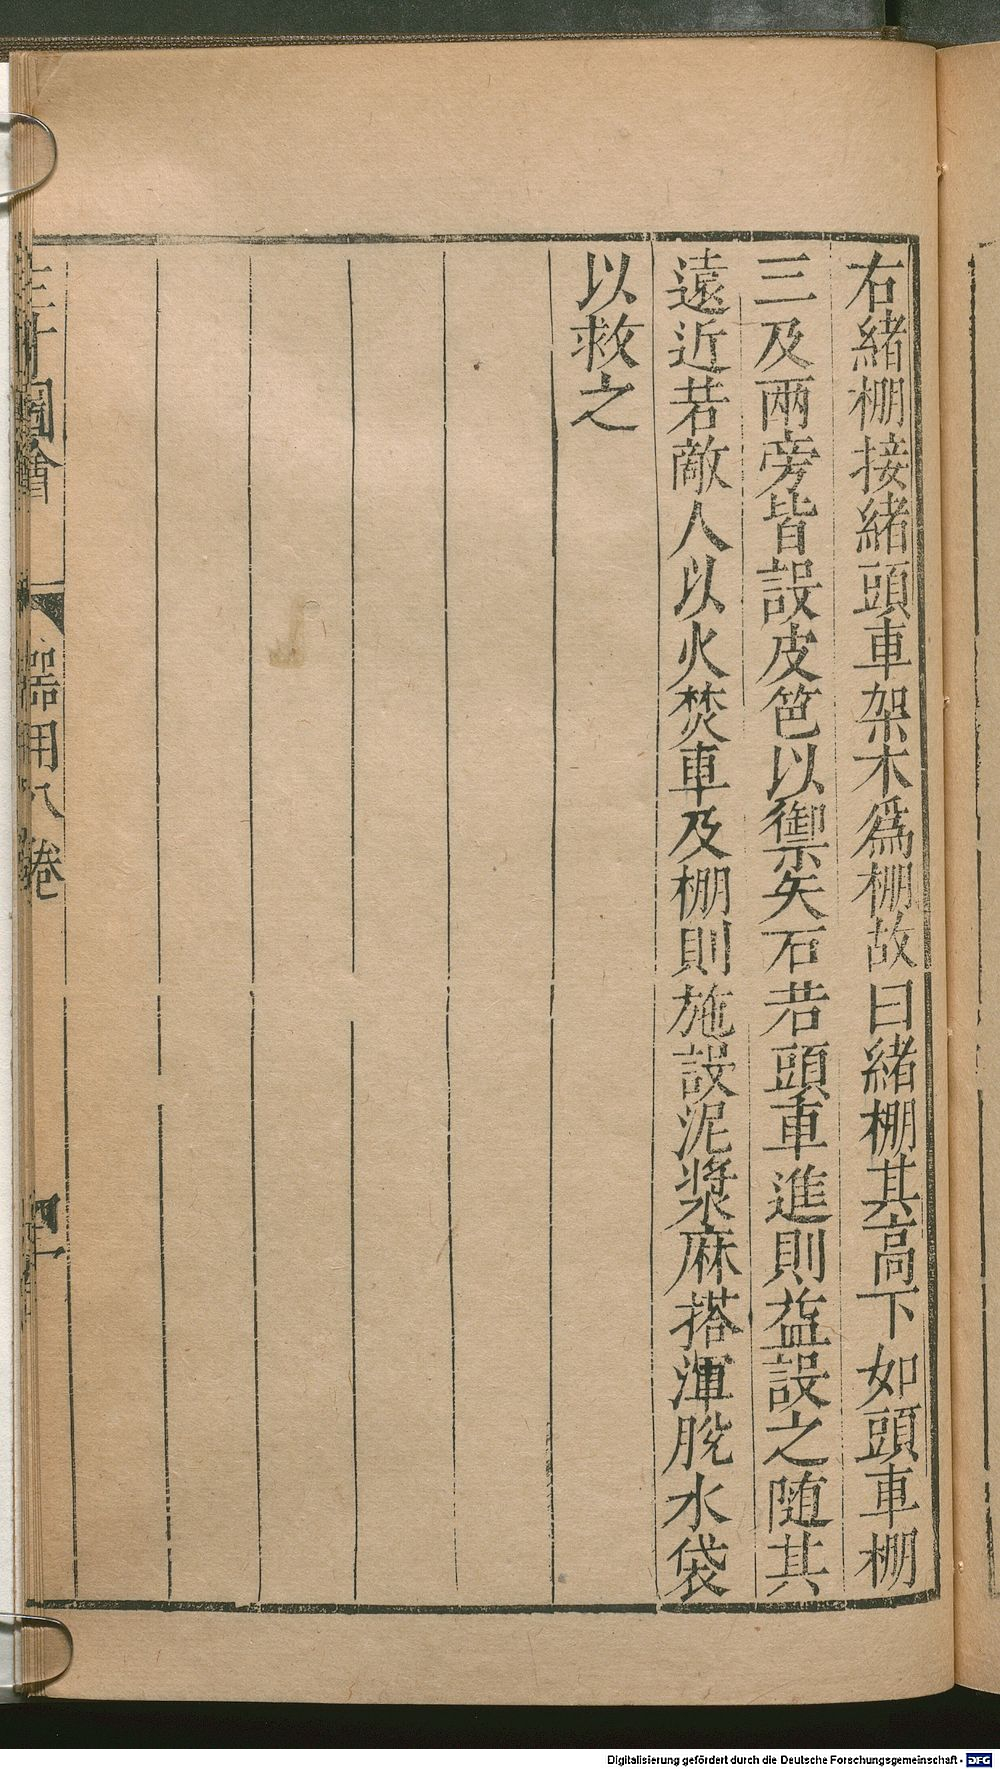 右緒棚接緒頭車架木爲棚故曰緒棚其高下如頭車棚
三及兩旁皆設皮笆以禦矢石若頭車進則益設之随其
遠近若敵人以火焚車及棚則施設泥漿麻搭渾脫水袋
以救之
三才圖會
器用八卷
四
Digitalisierung gefördert durch die Deutsche Forschungsgemeinschaft - DFG